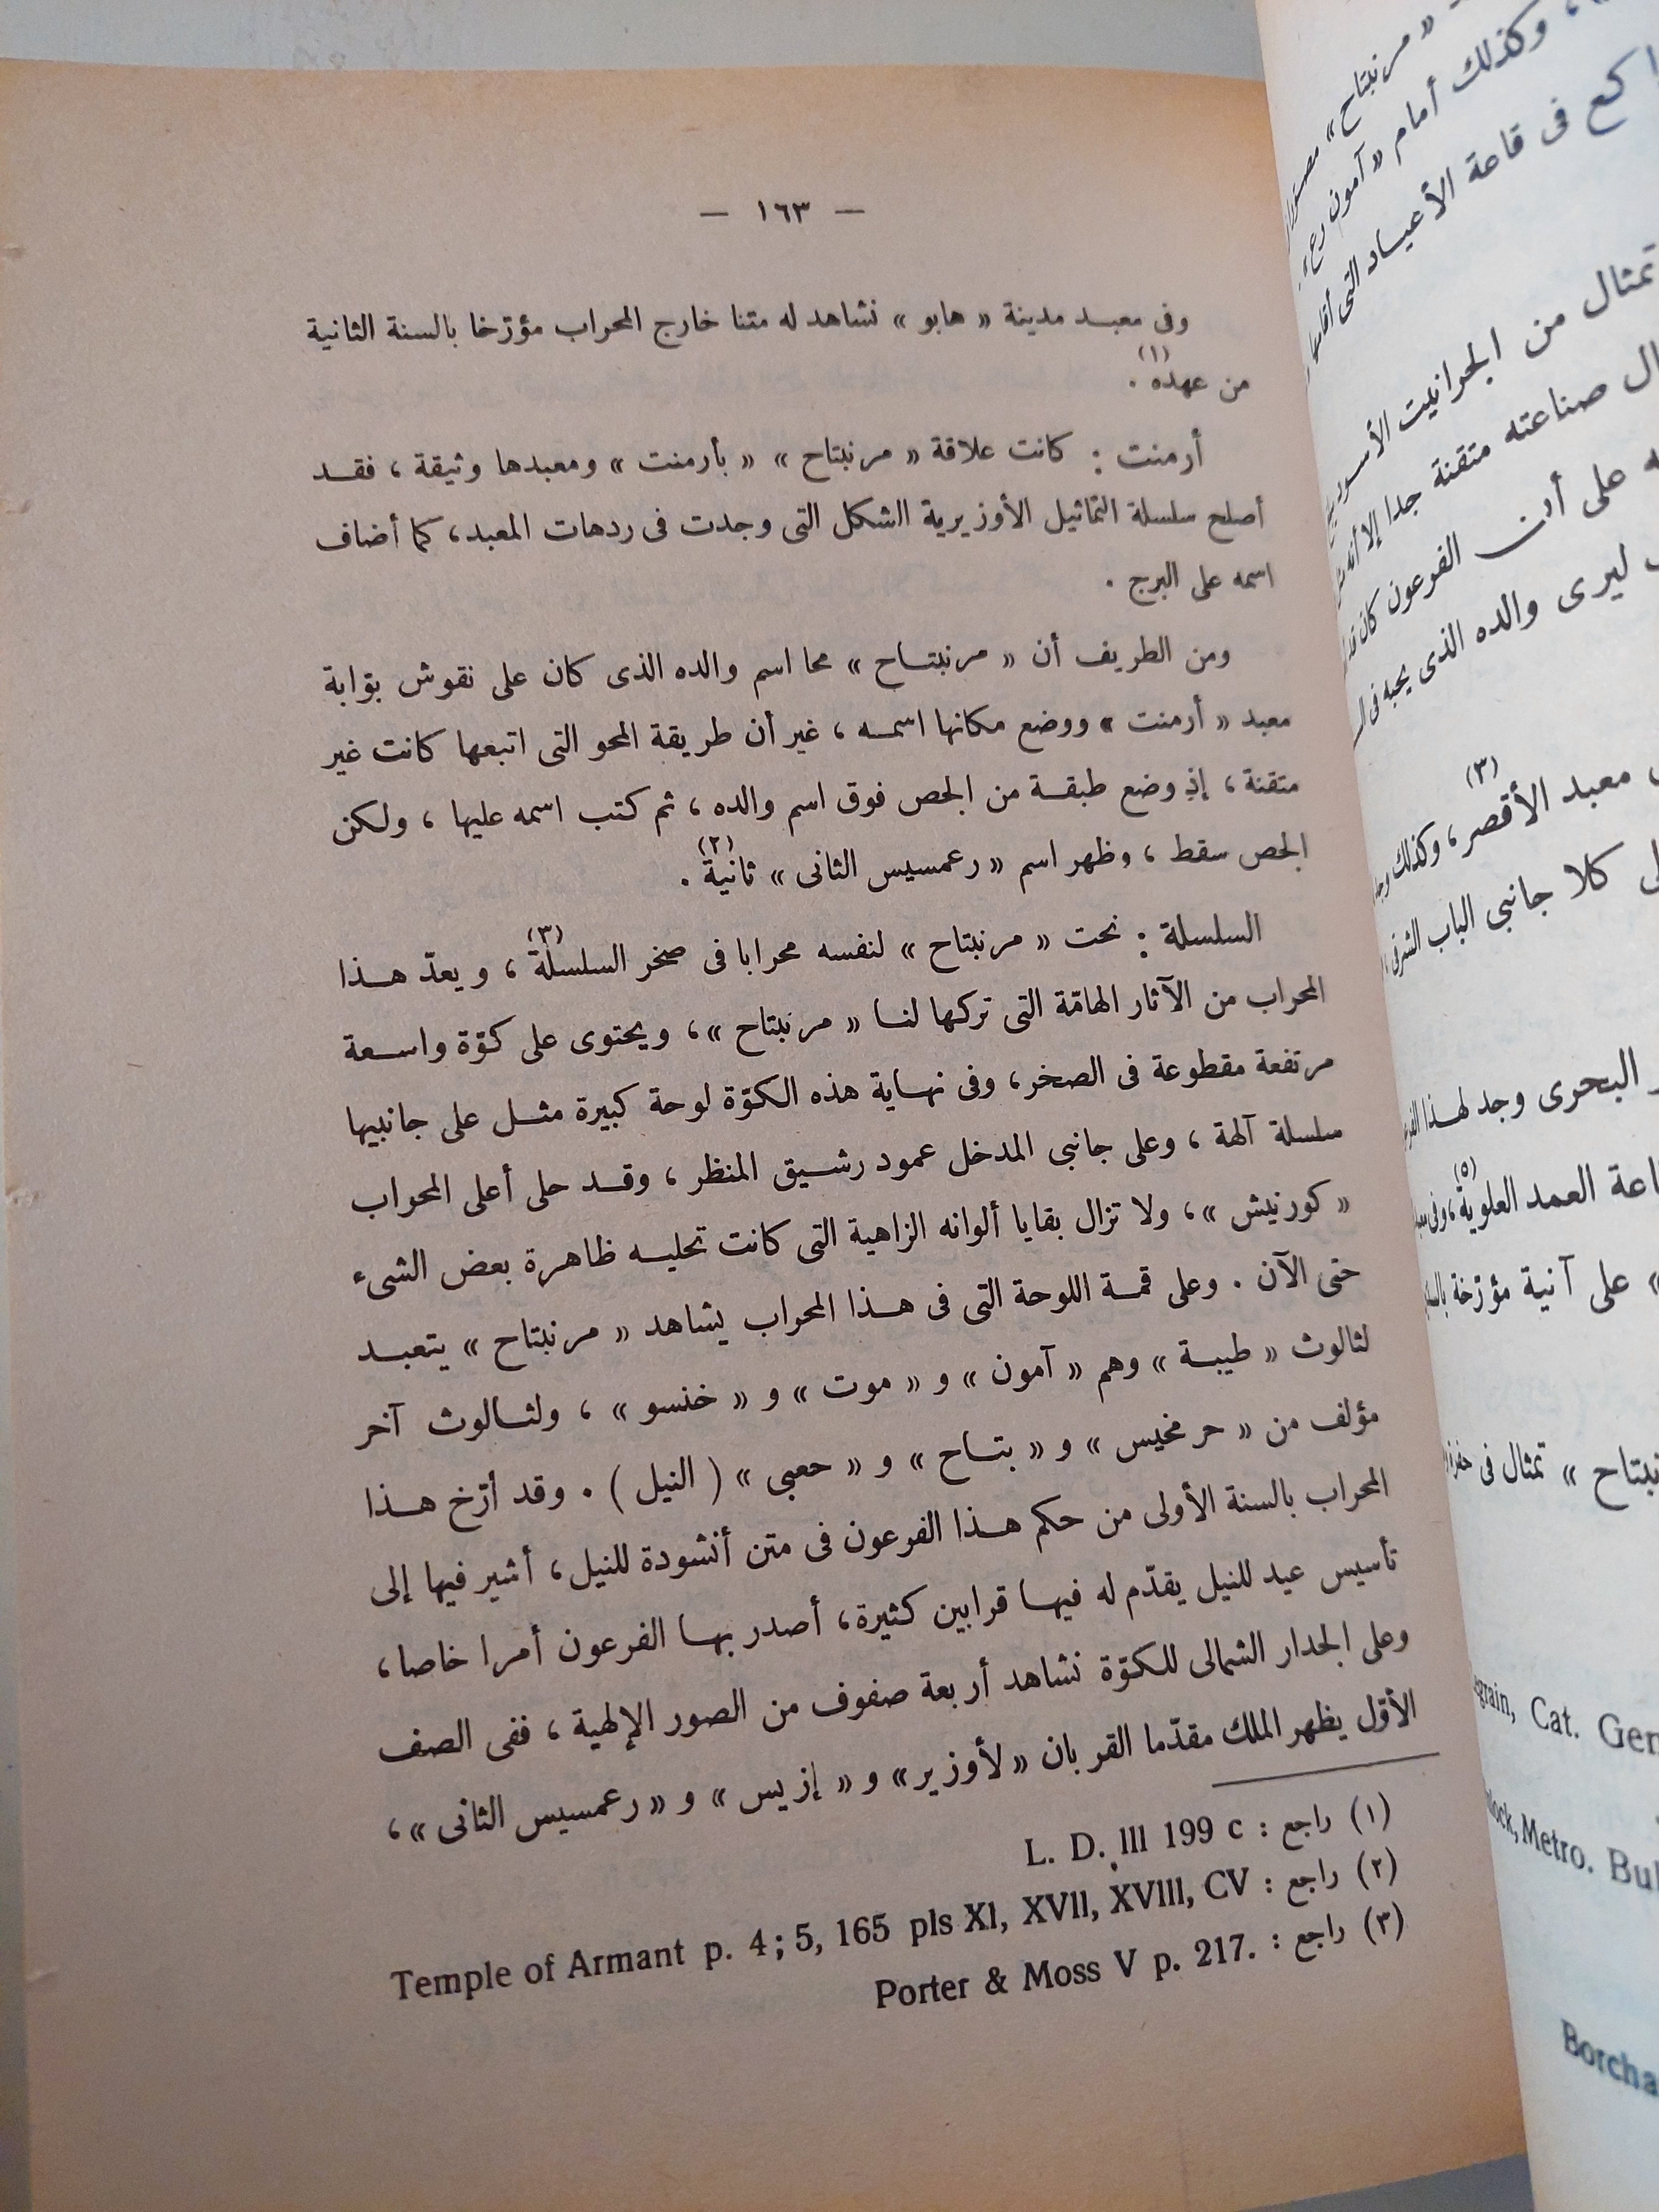 — ١٦٣ —
وفى معبد مدينة « هابو » نشاهد له متنا خارج المحراب مؤرّخا بالسنة الثانية
من عهده (١) .
أرمنت : كانت علاقة « مرنبتاح » « بأرمنت » ومعبدها وثيقة ، فقد
أصلح سلسلة التماثيل الأوزيرية الشكل التى وجدت فى ردهات المعبد، كما أضاف
اسمه على البرج .
ومن الطريف أن « مرنبتاح » محا اسم والده الذى كان على نقوش بوّابة
معبد « أرمنت » ووضع مكانها اسمه ، غير أن طريقة المحو التى اتبعها كانت غير
متقنة ، إذ وضع طبقة من الجص فوق اسم والده ، ثم كتب اسمه عليها ، ولكن
الجص سقط ، وظهر اسم « رعمسيس الثانى » ثانية (٢) .
السلسلة : نحت « مرنبتاح » لنفسه محرابا فى صخر السلسلة (٣) ، ويعدّ هذا
المحراب من الآثار الهامّة التى تركها لنا « مرنبتاح »، ويحتوى على كوّة واسعة
مرتفعة مقطوعة فى الصخر، وفى نهاية هذه الكوّة لوحة كبيرة مثل على جانبيها
سلسلة آلهة ، وعلى جانبى المدخل عمود رشيق المنظر ، وقد حلى أعلى المحراب
« كورنيش »، ولا تزال بقايا ألوانه الزاهية التى كانت تحليه ظاهرة بعض الشىء
حتى الآن . وعلى قمة اللوحة التى فى هذا المحراب يشاهد « مرنبتاح » يتعبد
لثالوث « طيبة » وهم « آمون » و « موت » و « خنسو » ، ولثالوث آخر
مؤلف من « حرمخيس » و « بتاح » و « حعبى » ( النيل ) . وقد أرّخ هذا
المحراب بالسنة الأولى من حكم هذا الفرعون فى متن أنشودة للنيل ، أشير فيها إلى
تأسيس عيد للنيل يقدّم له فيها قرابين كثيرة، أصدر بها الفرعون أمرا خاصا،
وعلى الجدار الشمالى للكوّة نشاهد أربعة صفوف من الصور الإلهية ، ففى الصف
الأوّل يظهر الملك مقدّما القربان « لأوزير» و « إزيس » و « رعمسيس الثانى »،
(١) راجع : L. D. III 199 c
(٢) راجع : Temple of Armant p. 4; 5, 165 pls XI, XVII, XVIII, CV
(٣) راجع : Porter & Moss V p. 217.
« مرنبتاح »
، وكذلك أمام « آمون رع »
فى قاعة الأعياد التى
تمثال من الجرانيت الأسود
صناعته متقنة جدا إلا أنه
على أن الفرعون كان
ليرى والده الذى يحبه فى
معبد الأقصر (٣) ، وكذلك
كلا جانبى الباب الشرقى
البحرى وجد لهذا
العمد العلوية (٥) ،
» على آنية مؤرّخة
» تمثال فى
Cat. Gen
Metro. Bul
Borcha